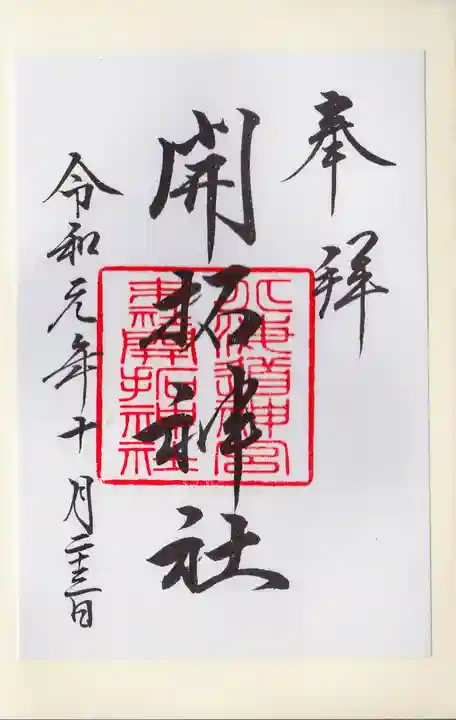 奉拝
開拓神社
北海道神宮
末社開拓神社
令和元年十月二十三日